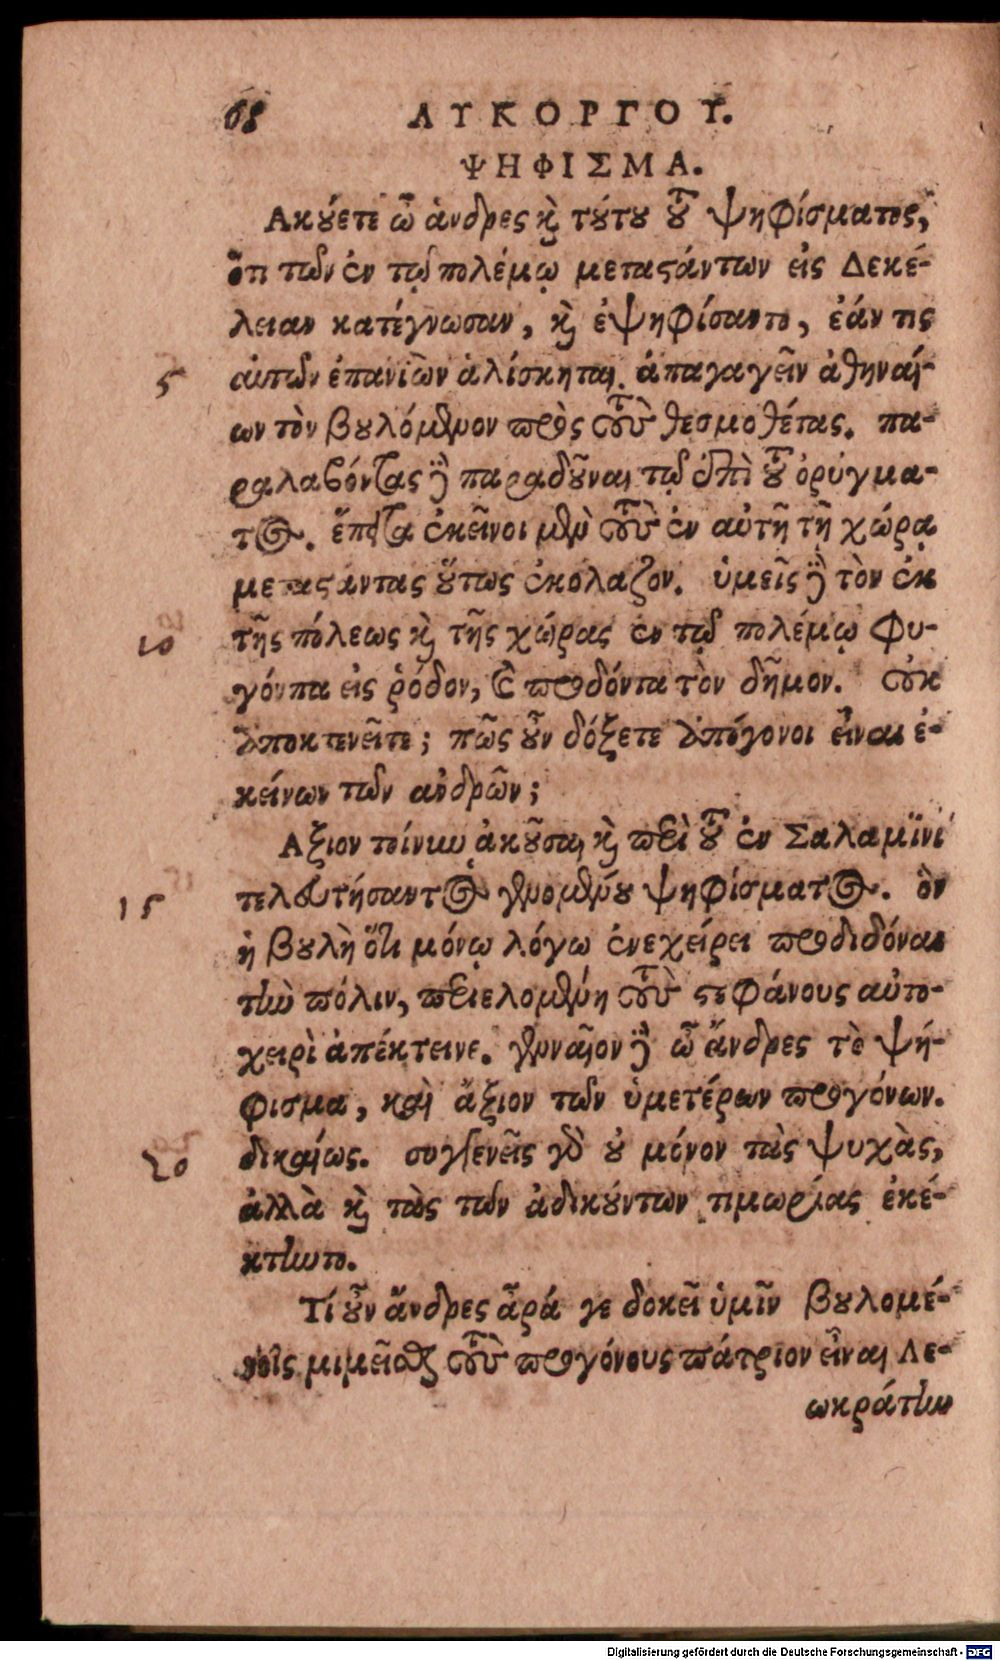 68 ΛΥΚΟΡΓΟΥ.
ΨΗΦΙΣΜΑ.
Ακούετε ὦ ἄνδρες καὶ τούτου τοῦ ψηφίσματος,
ὅτι τῶν ἐν τῷ πολέμῳ μεταστάντων εἰς Δεκέ-
λειαν κατέγνωσαν, καὶ ἐψηφίσαντο, ἐάν τις
5 αὐτῶν ἐπανιὼν ἁλίσκηται. ἀπαγαγεῖν ἀθηναί-
ων τὸν βουλόμενον πρὸς τοὺς θεσμοθέτας. πα-
ραλαβόντας δὲ παραδοῦναι τῷ ἐπὶ τοῦ ὀρύγμα-
τος. ἔπειτα ἐκεῖνοι μὲν τοὺς ἐν αὐτῆ τῆ χώρᾳ
μεταστάντας οὕτως ἐκόλαζον. ὑμεῖς δὲ τὸν ἐκ
10 τῆς πόλεως καὶ τῆς χώρας ἐν τῷ πολέμῳ φυ-
γόντα εἰς ῥόδον, καὶ προδόντα τὸν δῆμον. οὐκ
ἀποκτενεῖτε; πῶς οὖν δόξετε ἀπόγονοι εἶναι ἐ-
κείνων τῶν ἀνδρῶν;
Αξιον τοίνυν ἀκοῦσαι καὶ περὶ τοῦ ἐν Σαλαμῖνι
15 τελευτήσαντος γενομένου ψηφίσματος. ὃν
ἡ βουλὴ ὅτι μόνῳ λόγω ἐνεχείρει προδιδόναι
τὴν πόλιν, περιελομένη τοὺς στεφάνους αὐτο-
χειρὶ ἀπέκτεινε. γενναῖον δὲ ὦ ἄνδρες τὸ ψή-
φισμα, καὶ ἄξιον τῶν ὑμετέρων προγόνων.
20 δικαίως. συγγενεῖς γὰρ οὐ μόνον τὰς ψυχὰς,
ἀλλὰ καὶ τὰς τῶν ἀδικούντων τιμωρίας ἐκέ-
κτηντο.
Τί οὖν ἄνδρες ἆρά γε δοκεῖ ὑμῖν βουλομέ-
νοις μιμεῖσθαι τοὺς προγόνους πάτριον εἶναι Λε-
ωκράτην
Digitalisierung gefördert durch die Deutsche Forschungsgemeinschaft - DFG